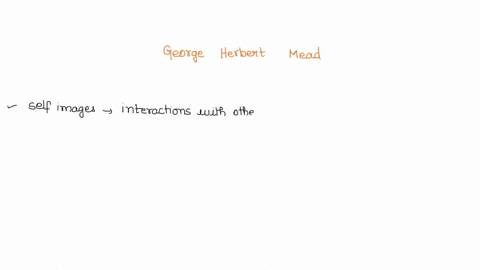 George Herbert Mead
✓ self images → interactions with othe